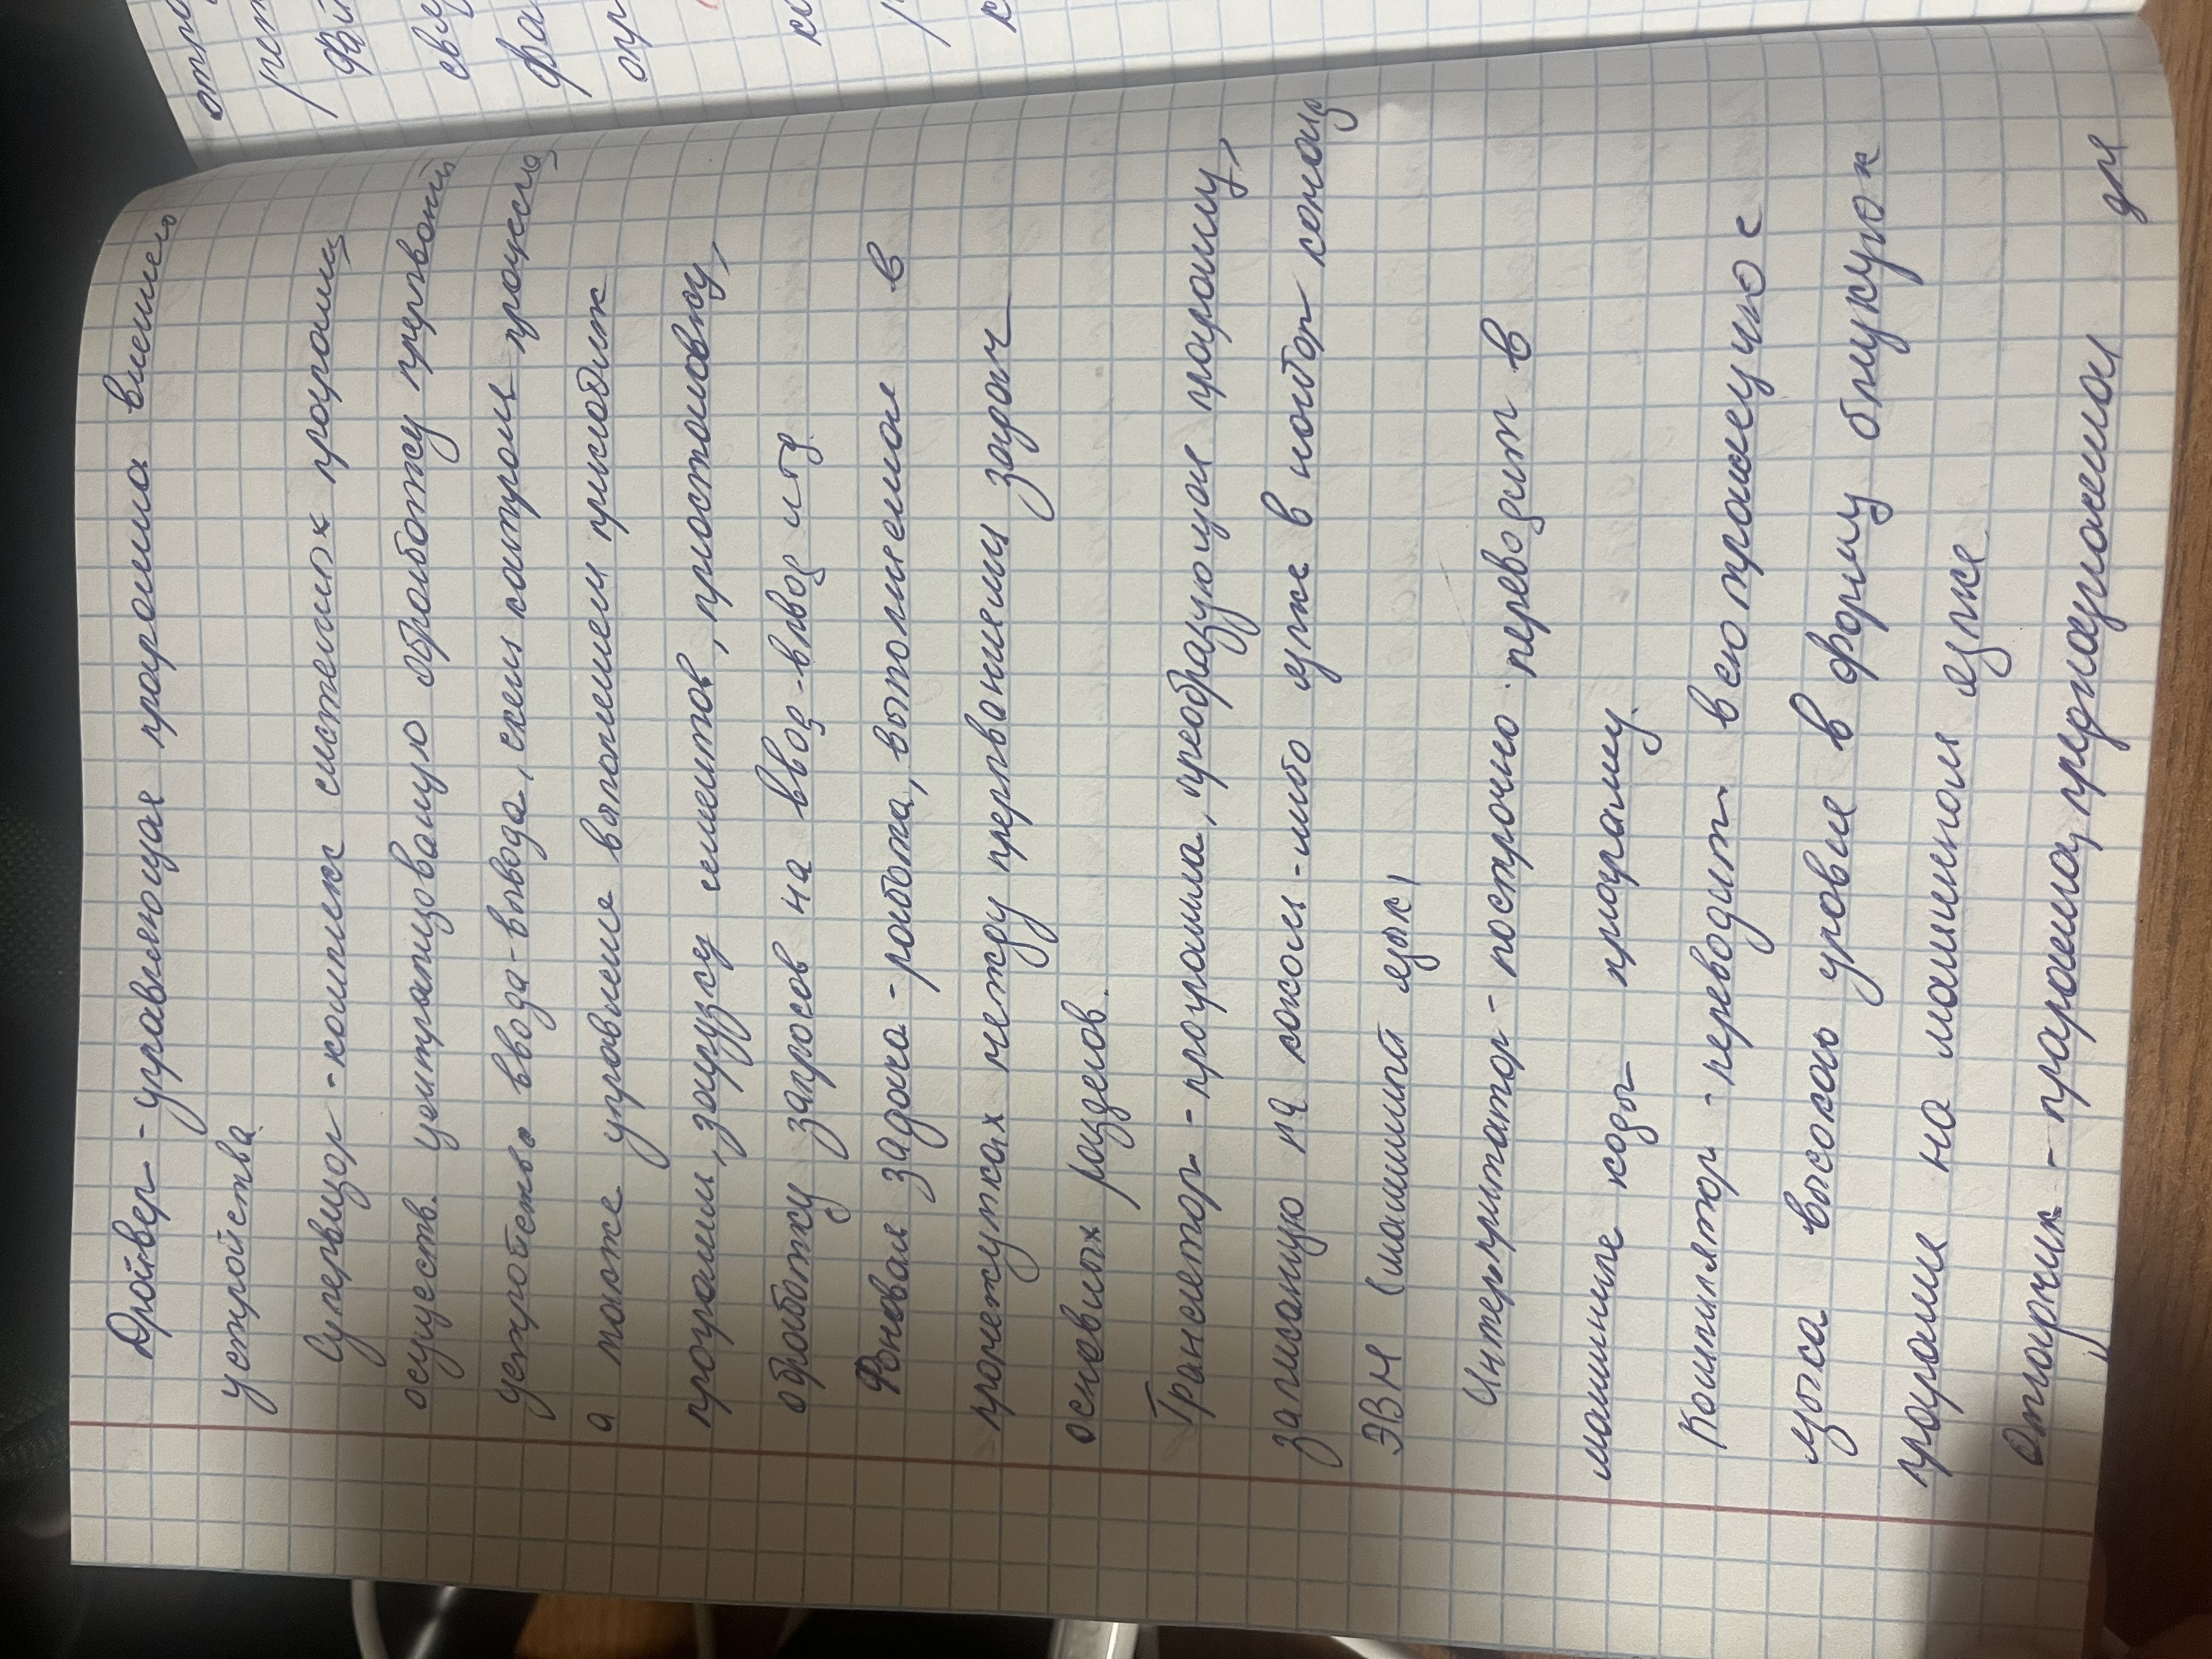 Драйвер - управляющая програма внешнего
устройства
Супервизор - комплекс системных програм,
осуществ. централизованую обработку прерваний
устройств ввода-вывода, схем контроля процессора,
а также управление выполнением прикладных
програм, загрузку сегментов, приостановку,
обработку запросов на ввод-вывод итд.
Фоновая задача - работа, выполняемая в
промежутках между прерваниями задач
основных разделов.
Транслятор - программа, преобразующая програму,
записаную на каком-либо языке в набор команд
ЭВМ (машиный язык)
Интерпритатор - построчно переводит в
машиные коды програму.
Компилятор - переводит всю програму с
языка высокого уровня в форму близкую к
програме на машинном языке
Отладчик - програма, предназначеная для